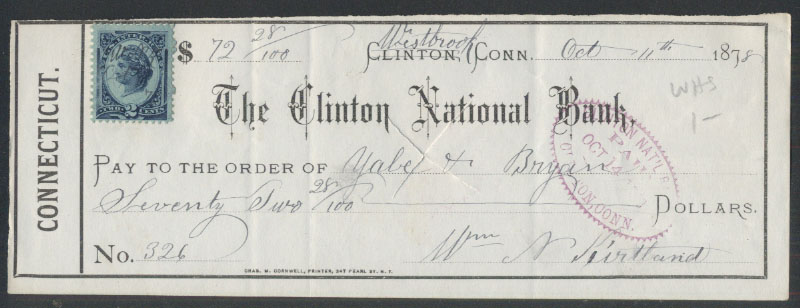 CONNECTICUT.
U.S. INTER. REV.
TWO CENTS
2
$ 72 28/100 Westbrook CLINTON, CONN. Oct 11th 1878
The Clinton National Bank,
WHS
1-
PAY TO THE ORDER OF Yale & Bryan
Seventy Two 28/100 DOLLARS.
TON NAT'L B
PAID
OCT 14
TON, CONN.
No. 326 Wm N Kirtland
CHAS. M. CORNWELL, PRINTER, 247 PEARL ST. N.Y.